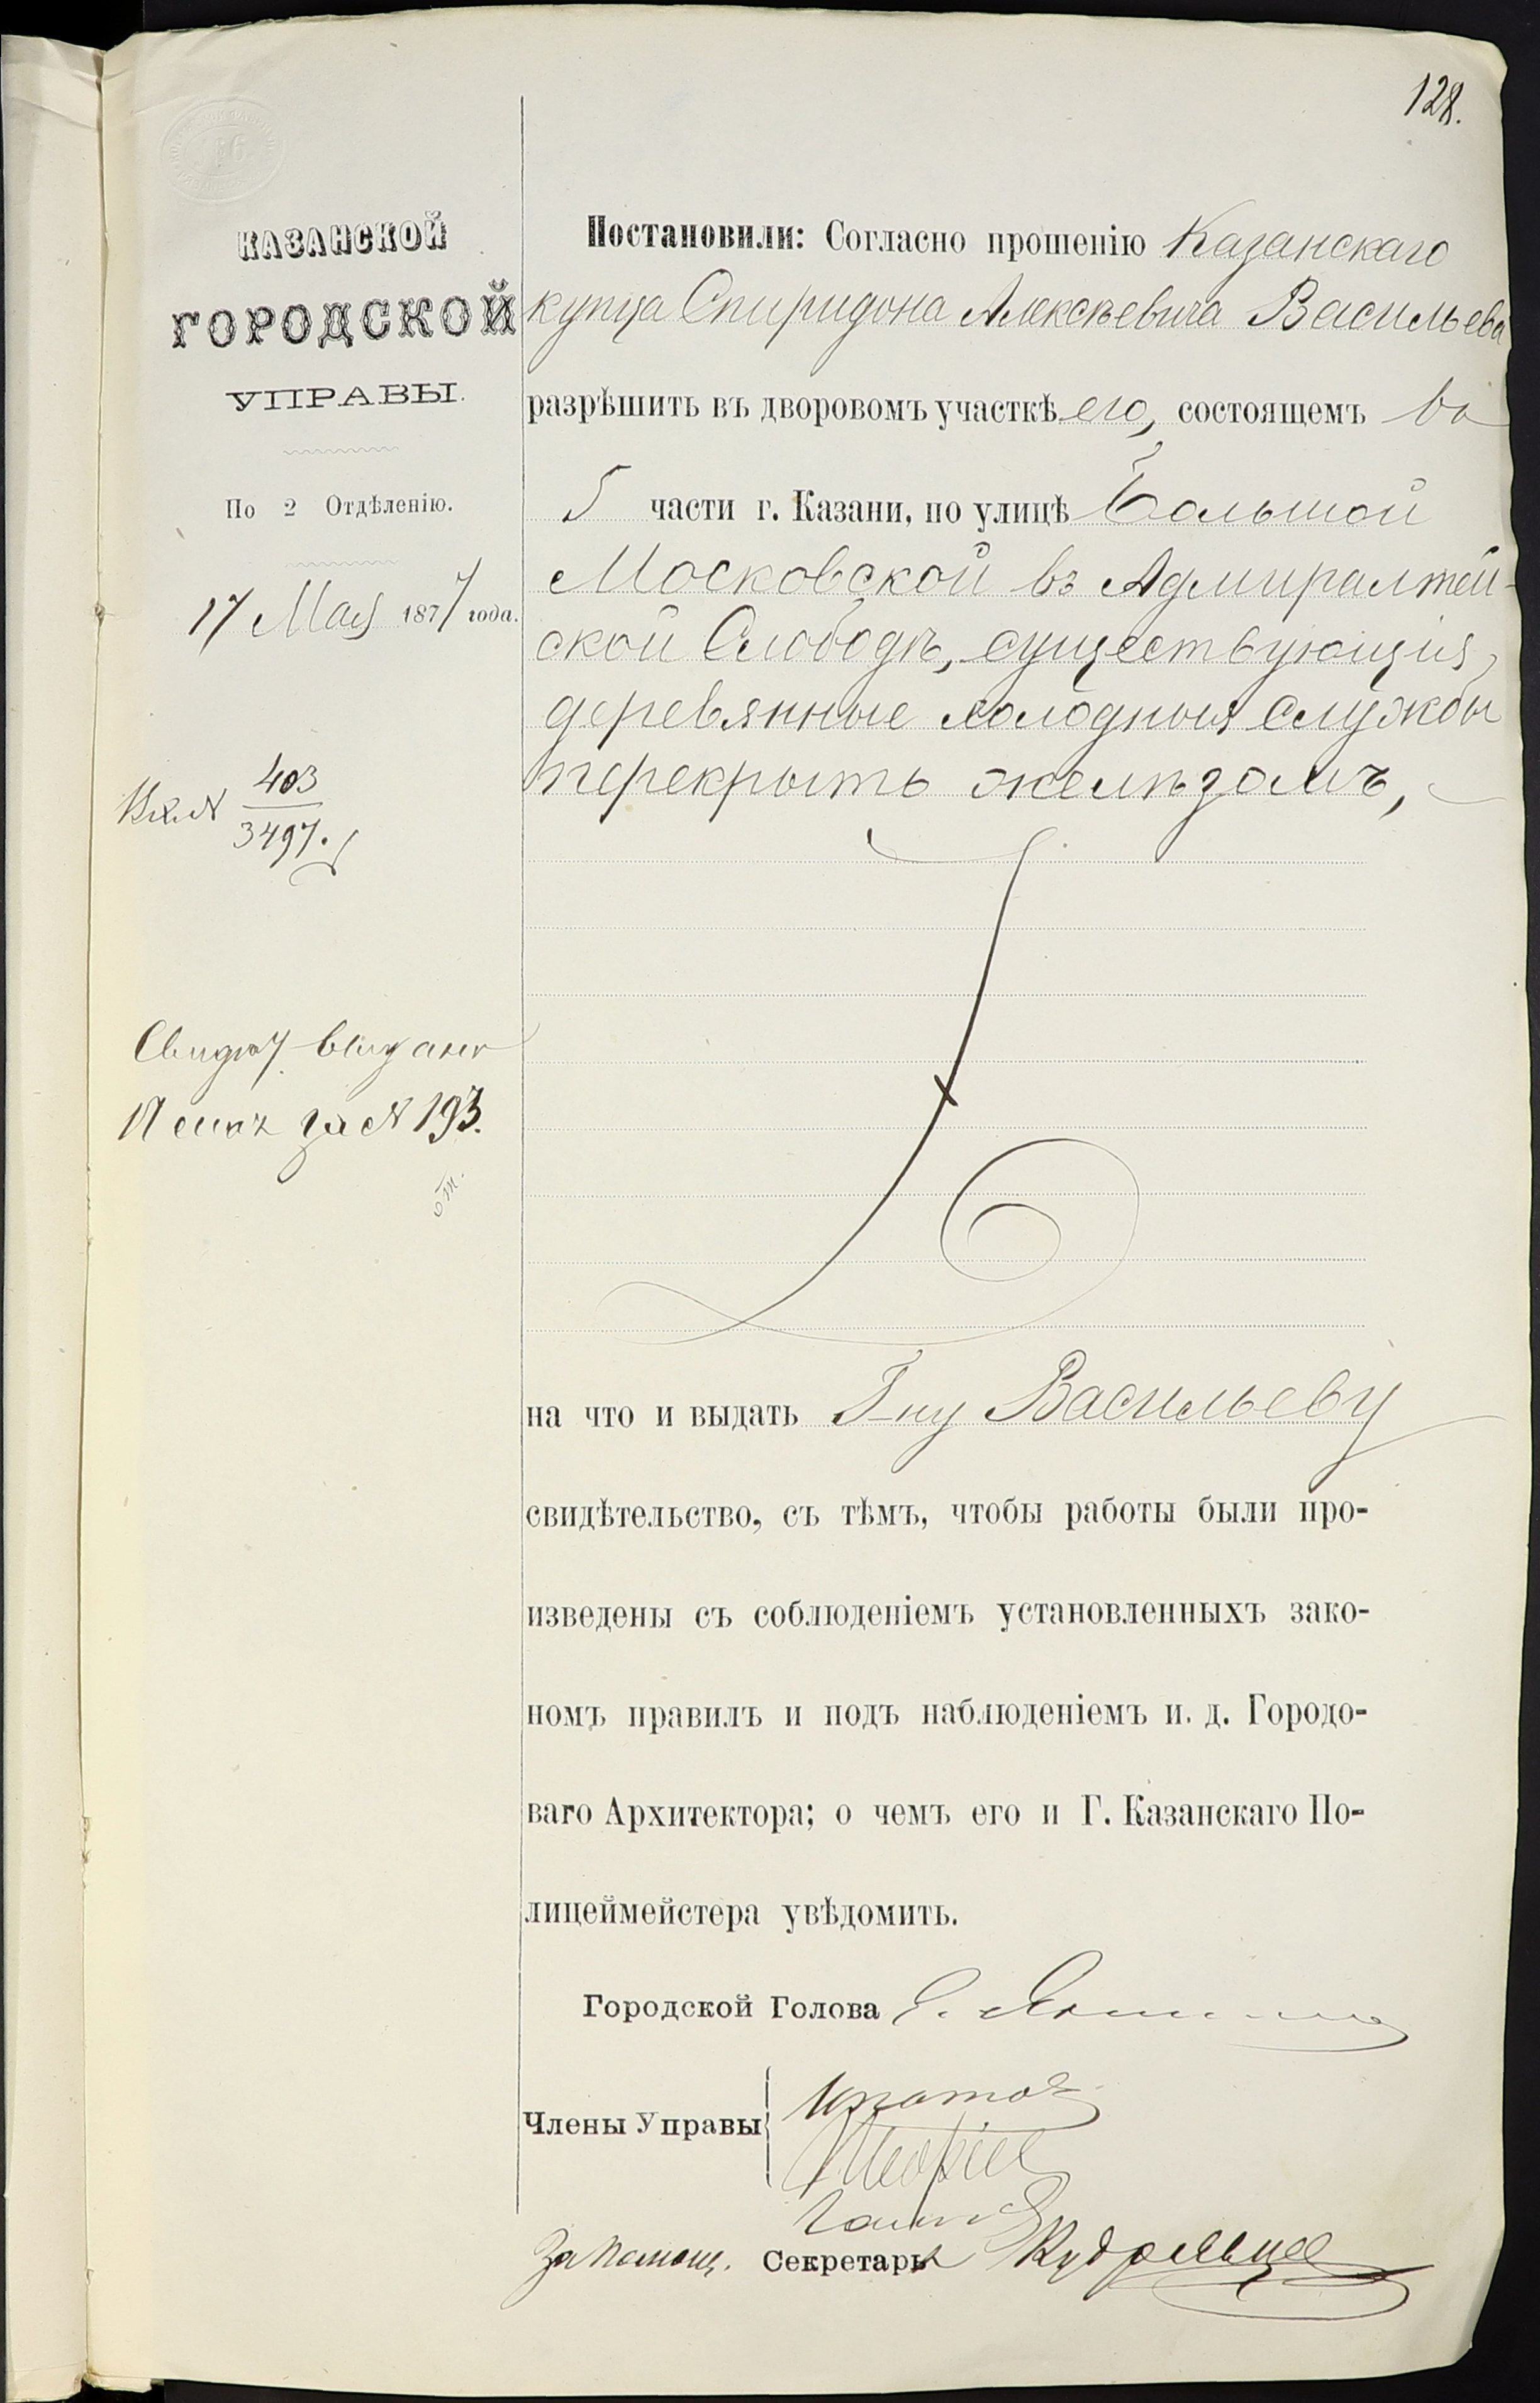 128.
КАЗАНСКОЙ
ГОРОДСКОЙ
УПРАВЫ.
По 2 Отдѣленію.
17 Мая 1877 года.
Вх. № 403
3497.
выдано
за № 193.
Постановили: Согласно прошенію Казанскаго
купца Спиридона Алексѣевича Васильева
разрѣшить въ дворовомъ участкѣ его, состоящемъ во
5 части г. Казани, по улицѣ Большой
Московской въ Адмиралтей-
ской Слободѣ, существующія
деревянные холодныя службы
перекрыть желѣзомъ,
на что и выдать Г-ну Васильеву
свидѣтельство, съ тѣмъ, чтобы работы были про-
изведены съ соблюденіемъ установленныхъ зако-
номъ правилъ и подъ наблюденіемъ и. д. Городо-
ваго Архитектора; о чемъ его и Г. Казанскаго По-
лицеймейстера увѣдомить.
Городской Голова
Члены Управы
За Помощ. Секретаря Кудрявцев